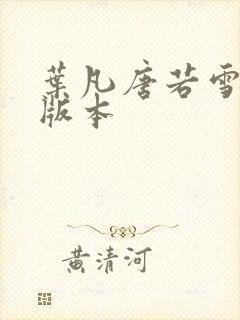 葉凡唐若雪
版本
黄清河